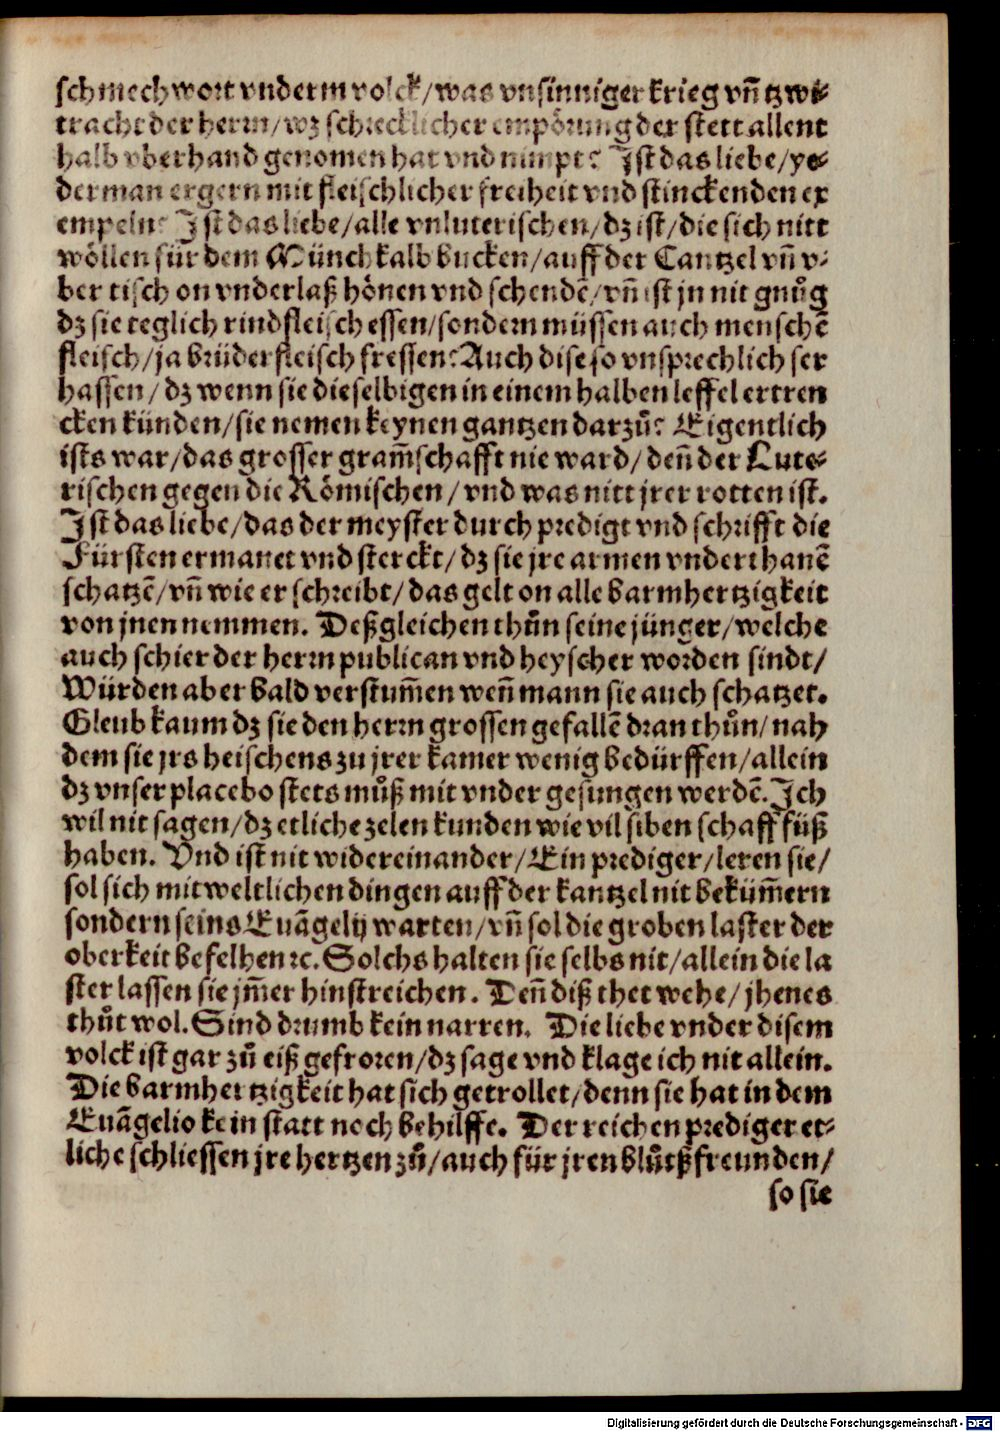 schmechwort vnderm volck/was vnsinniger krieg vñ tzwi⸗
tracht der herrn/wz schrecklicher empörung der stett allent
halb vberhand genomen hat vnd nimpt? Ist das liebe/ye⸗
derman ergern mit fleischlicher freiheit vnd stinckenden ex
empeln? Ist das liebe/alle vnluterischen/dz ist/die sich nitt
wöllen für dem Münchkalb bucken/auff der Cantzel vñ v⸗
ber tisch on vnderlaß hönen vnd schendē/vñ ist jn nit gnůg
dz sie teglich rindfleisch essen/sondern müssen auch menschē
fleisch/ja brüder fleisch fressen? Auch dise so vnsprechlich ser
hassen/dz wenn sie dieselbigen in einem halben leffel ertren
cken künden/sie nemen keynen gantzen darzů? Eigentlich
ists war/das grosser gram̄schafft nie ward/deñ der Lute⸗
rischen gegen die Römischen/vnd was nitt jrer rotten ist.
Ist das liebe/das der meyster durch predigt vnd schrifft die
Fürsten ermanet vnd sterckt/dz sie jre armen vnderthanē
schatzē/vñ wie er schreibt/das gelt on alle barmhertzigkeit
von jnen nemmen. Deßgleichen thůn seine jünger/welche
auch schier der herrn publican vnd heyscher worden sindt/
Würden aber bald verstum̄en weñ mann sie auch schatzet.
Gleub kaum dz sie den herrn grossen gefallē dran thůn/nah
dem sie jrs heischens zu jrer kamer wenig bedürffen/allein
dz vnser placebo stets můß mit vnder gesungen werdē. Ich
wil nit sagen/dz etliche zelen kunden wie vil siben schaff füß
haben. Vnd ist nit widereinander/Ein prediger/leren sie/
sol sich mit weltlichen dingen auff der kantzel nit beküm̄ern
sondern seins Euāgelij warten/vñ sol die groben laster der
oberkeit befelhen ⁊c. Solchs halten sie selbs nit/allein die la
ster lassen sie jm̄er hinstreichen. Deñ diß thet wehe/jhenes
thůt wol. Sind drumb kein narren. Die liebe vnder disem
volck ist gar zů eiß gefroren/dz sage vnd klage ich nit allein.
Die barmhertzigkeit hat sich getrollet/denn sie hat in dem
Euāgelio kein statt noch behilffe. Der reichen prediger et⸗
liche schliessen jre hertzen zů/auch für jren blůtß freunden/
so sie
Digitalisierung gefördert durch die Deutsche Forschungsgemeinschaft - DFG